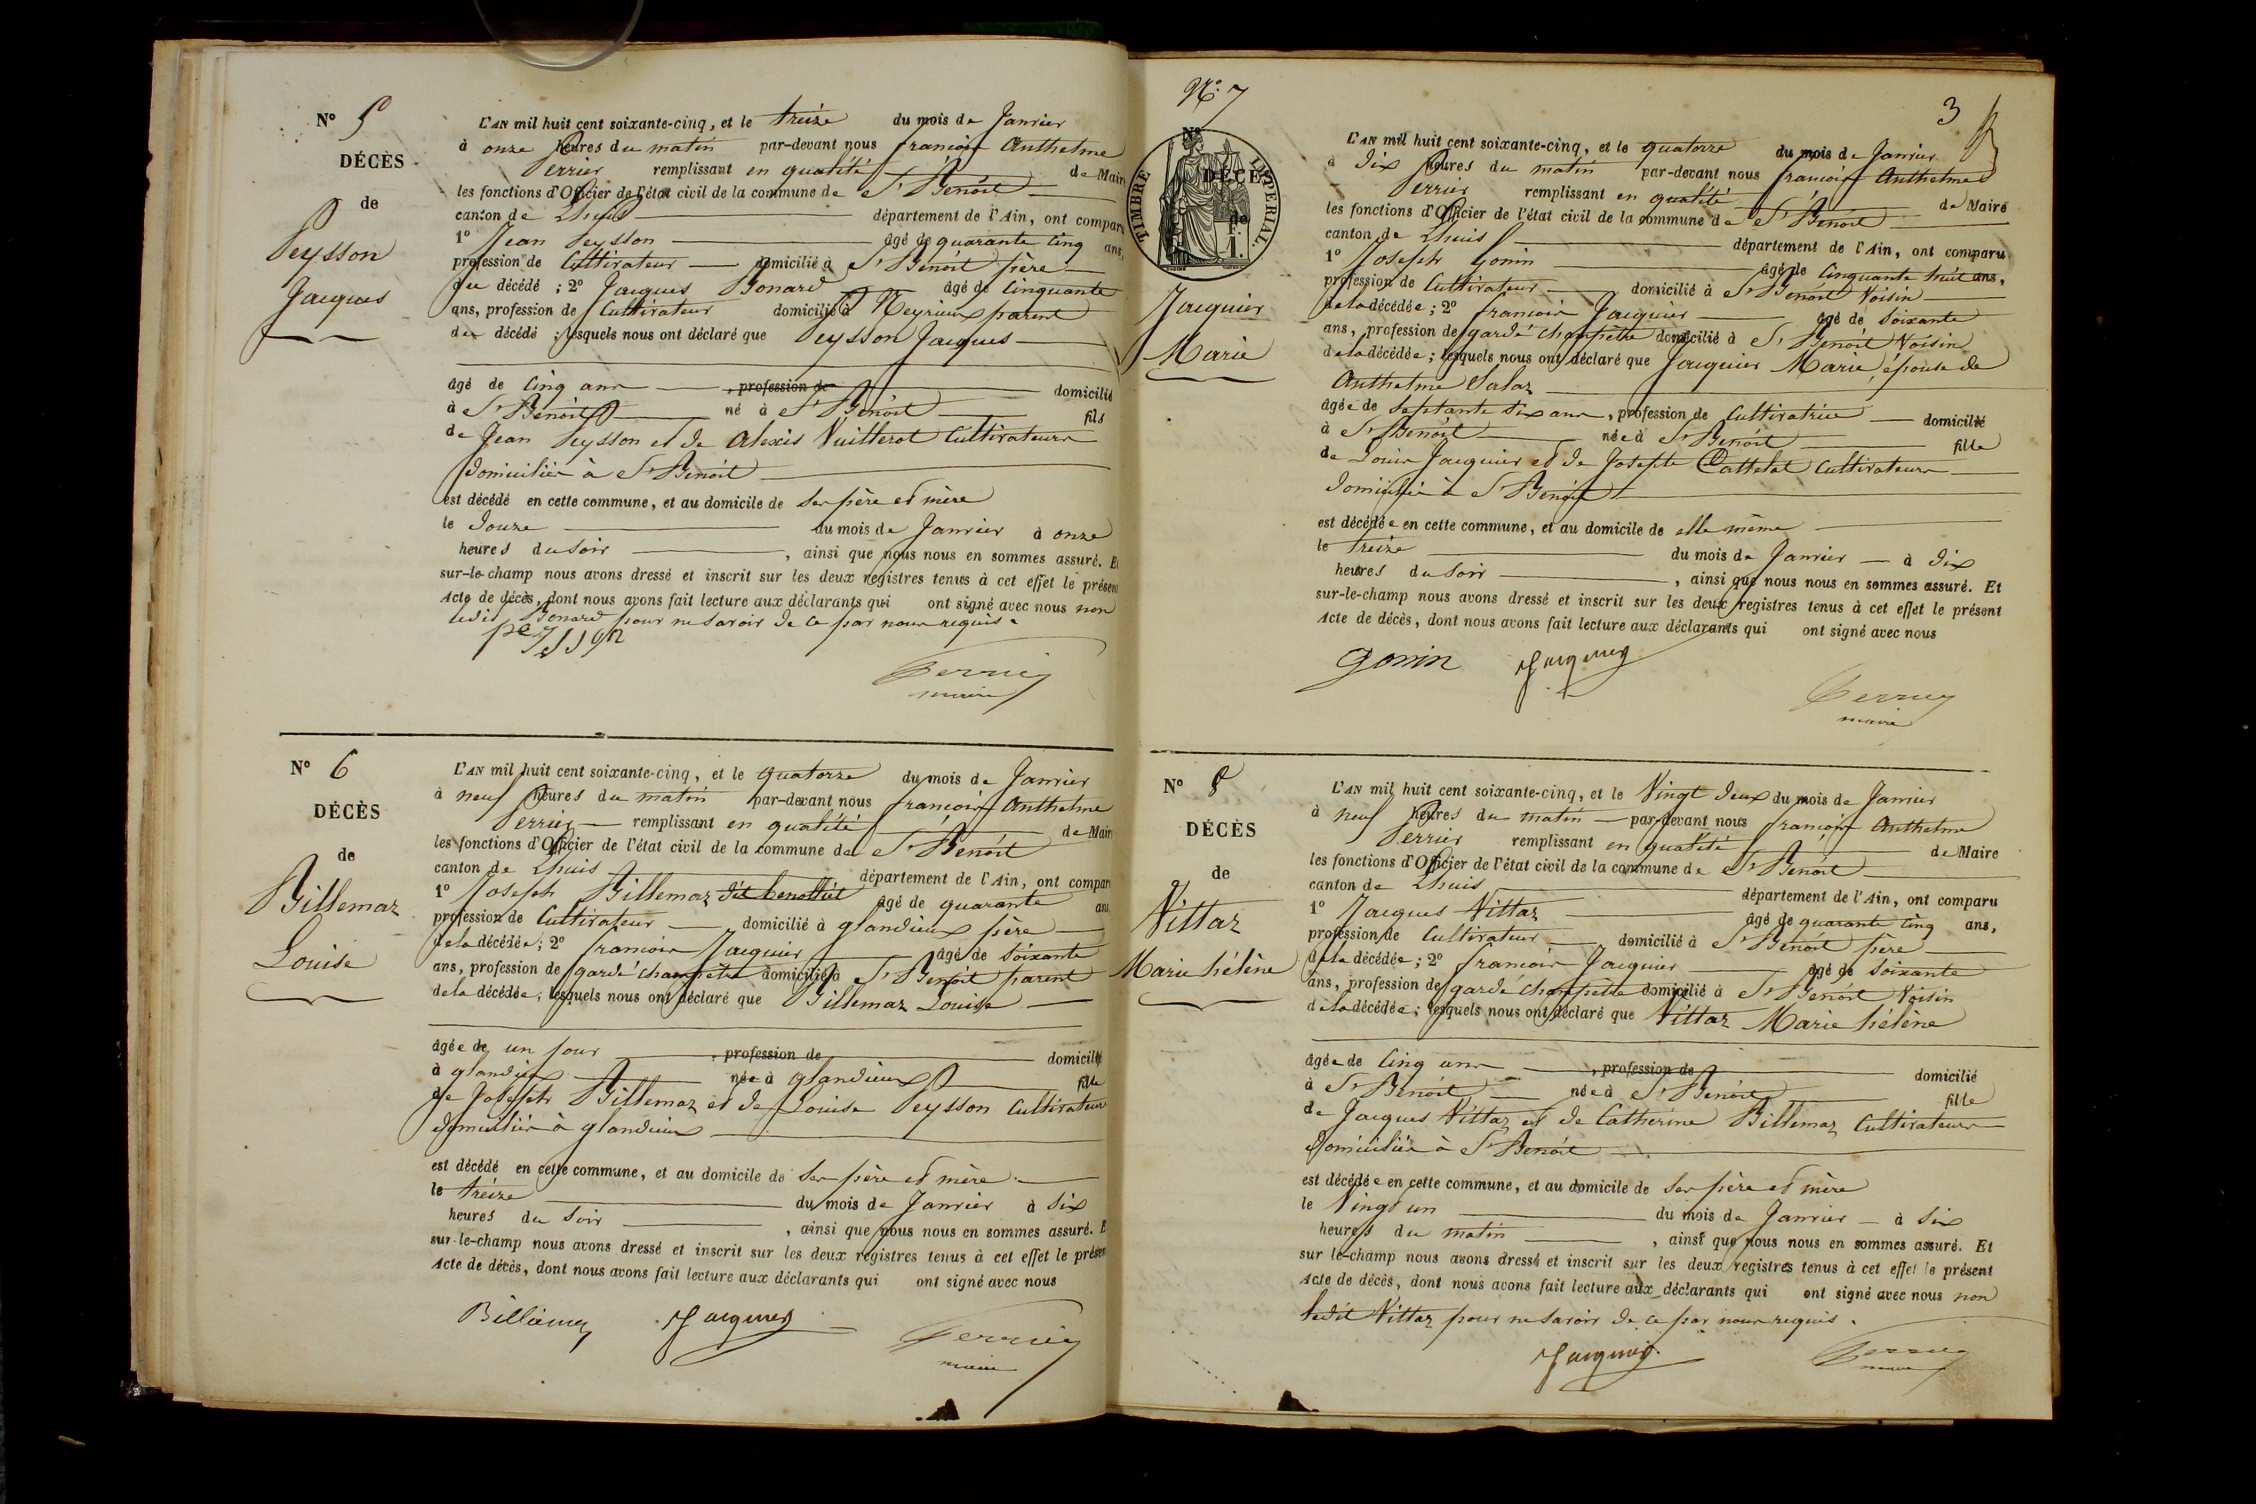 Nº 5
DÉCÈS
de
Peysson
Jacques
L'AN mil huit cent soixante-cinq, et le treize du mois de Janvier
à onze heures du matin par-devant nous françois Anthelme
Perrier remplissant en qualité de Mair
les fonctions d'Officier de l'état civil de la commune de St Benoit
canton de Lhuis département de l'Ain, ont compar
1º Jean Peysson âgé de quarante cinq ans,
profession de Cultivateur domicilié à St Benoit père
du décédé ; 2º Jacques Bonard âgé de cinquante
ans, profession de Cultivateur domicilié à Meyrieux parent
du décédé ; lesquels nous ont déclaré que Peysson Jacques
âgé de cinq ans , profession de domicilié
à St Benoit né à St Benoit fils
de Jean Peysson et de Alexis Vuillerot Cultivateurs
domiciliés à St Benoit
est décédé en cette commune, et au domicile de ses père et mère
le douze du mois de Janvier à onze
heures du soir , ainsi que nous nous en sommes assuré. E
sur-le-champ nous avons dressé et inscrit sur les deux registres tenus à cet effet le présen
Acte de décès, dont nous avons fait lecture aux déclarants qui ont signé avec nous non
ledit Bonard pour ne savoir de ce par nous requis.
peysson
Perrier
maire
Nº 6
DÉCÈS
de
Billemaz
Louise
L'AN mil huit cent soixante-cinq, et le quatorze du mois de Janvier
à neuf heures du matin par-devant nous françois Anthelme
Perrier remplissant en qualité de Mair
les fonctions d'Officier de l'état civil de la commune de St Benoit
canton de Lhuis département de l'Ain, ont compar
1º Joseph Billemaz dit âgé de quarante an
profession de Cultivateur domicilié à glandieux père
de la décédée ; 2º françois Jacquier âgé de soixante
ans, profession de garde champêtre domicilié à St Benoit parent
de la décédée ; lesquels nous ont déclaré que Billemaz Louise
âgée de un jour , profession de domicilié
à glandieux née à glandieux fille
de Joseph Billemaz et de Louise Peysson Cultivateur
domiciliés à glandieux
est décédé en cette commune, et au domicile de ses père et mère
le treize du mois de Janvier à six
heures du soir , ainsi que nous nous en sommes assuré. E
sur-le-champ nous avons dressé et inscrit sur les deux registres tenus à cet effet le présen
Acte de décès, dont nous avons fait lecture aux déclarants qui ont signé avec nous
Jacquier Perrier
maire
3
Nº 7
Nº
DÉCÈ
de
TIMBRE IMPERIAL.
1 F.
Jacquier
Marie
L'AN mil huit cent soixante-cinq, et le quatorze du mois de Janvier
à dix heures du matin par-devant nous françois Anthelme
Perrier remplissant en qualité de Maire
les fonctions d'Officier de l'état civil de la commune de St Benoit
canton de Lhuis département de l'Ain, ont comparu
1º Joseph Gonin âgé de cinquante huit ans,
profession de Cultivateur domicilié à St Benoit Voisin
de la décédée ; 2º françois Jacquier âgé de soixante
ans, profession de garde champêtre domicilié à St Benoit Voisin
de la décédée ; lesquels nous ont déclaré que Jacquier Marie, épouse de
Anthelme Salaz
âgée de septante six ans , profession de Cultivatrice domicilié
à St Benoit née à St Benoit fille
de Louis Jacquier et de Josephte Cattelet Cultivateurs
domiciliés à St Benoit
est décédée en cette commune, et au domicile de elle même
le treize du mois de Janvier à dix
heures du soir , ainsi que nous nous en sommes assuré. Et
sur-le-champ nous avons dressé et inscrit sur les deux registres tenus à cet effet le présent
Acte de décès, dont nous avons fait lecture aux déclarants qui ont signé avec nous
gonin Jacquier
Perrier
maire
Nº 8
DÉCÈS
de
Vittaz
Marie hélène
L'AN mil huit cent soixante-cinq, et le Vingt deux du mois de Janvier
à neuf heures du matin par-devant nous françois Anthelme
Perrier remplissant en qualité de Maire
les fonctions d'Officier de l'état civil de la commune de St Benoit
canton de Lhuis département de l'Ain, ont comparu
1º Jacques Vittaz âgé de quarante cinq ans,
profession de Cultivateur domicilié à St Benoit père
de la décédée ; 2º françois Jacquier âgé de soixante
ans, profession de garde champêtre domicilié à St Benoit Voisin
de la décédée ; lesquels nous ont déclaré que Vittaz Marie hélène
âgée de cinq ans , profession de domicilié
à St Benoit née à St Benoit fille
de Jacques Vittaz et de Catherine Billemaz Cultivateurs
domiciliés à St Benoit
est décédée en cette commune, et au domicile de ses père et mère
le Vingt un du mois de Janvier à six
heures du matin , ainsi que nous nous en sommes assuré. Et
sur le-champ nous avons dressé et inscrit sur les deux registres tenus à cet effet le présent
Acte de décès, dont nous avons fait lecture aux déclarants qui ont signé avec nous non
ledit Vittaz pour ne savoir de ce par nous requis.
Jacquier Perrier
maire